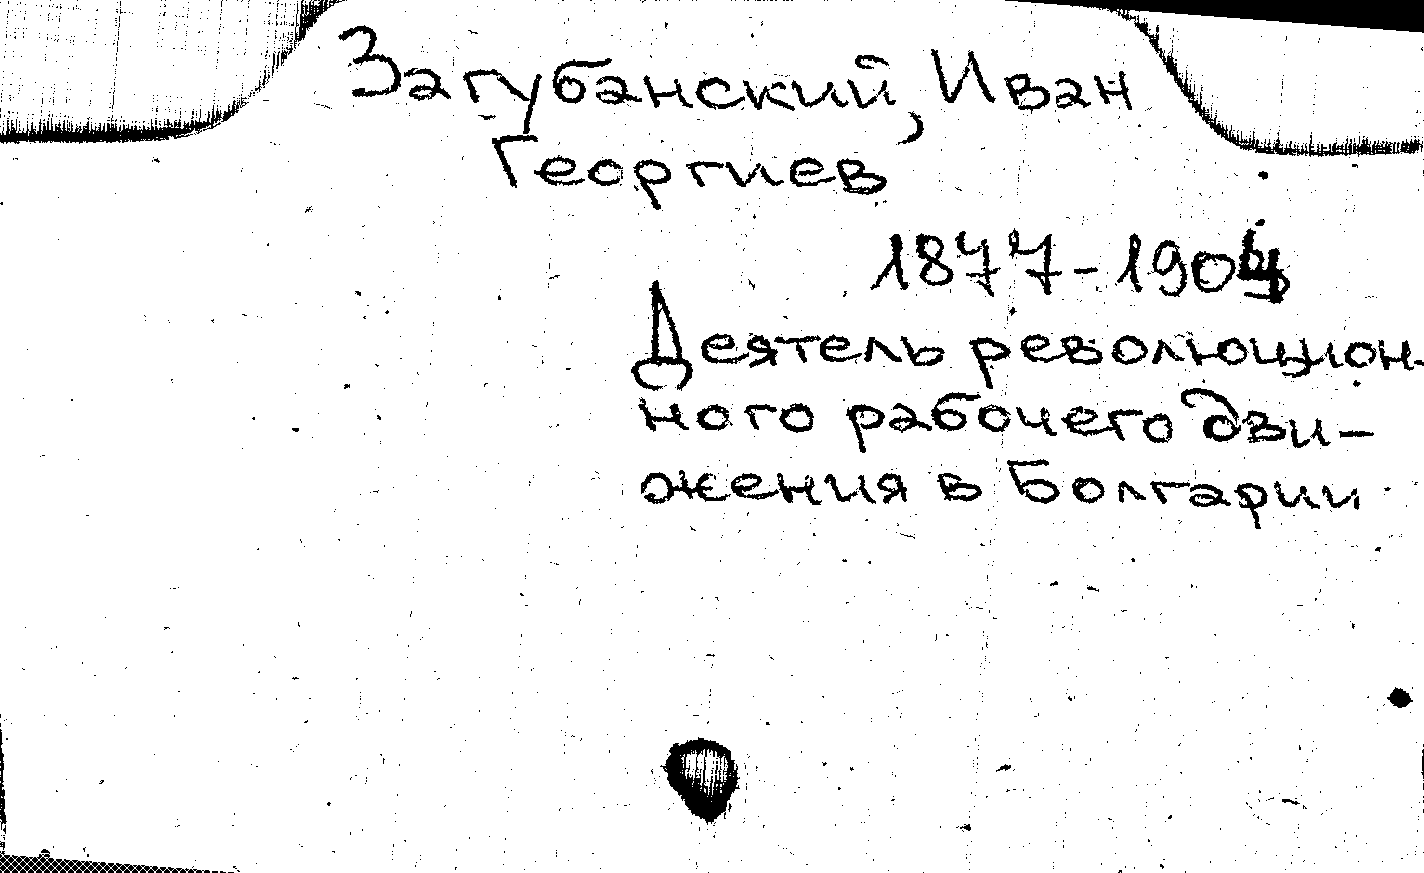 Загубанский, Иван
Георгиев
1877-1904
Деятель революцион-
ного рабочего дви-
жения в Болгарии